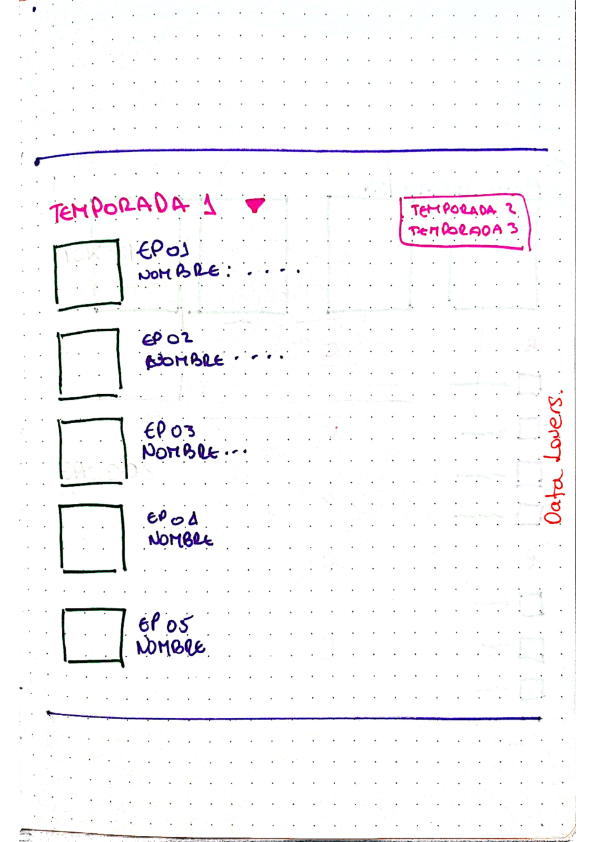 TEMPORADA 1
TEMPORADA 2
TEMPORADA 3
EP 01
NOMBRE: . . . .
EP 02
NOMBRE . . . . .
EP 03
NOMBRE ...
EP 04
NOMBRE
EP 05
NOMBRE
Data Lovers.